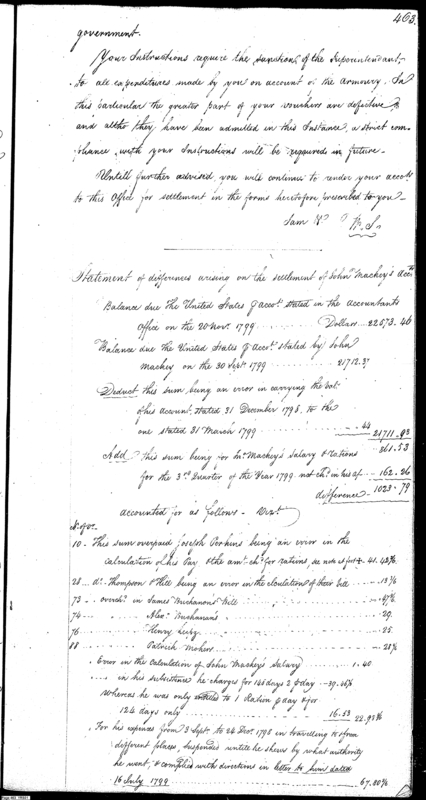 463.
government.
Your Instructions require the sanction of the Superintendant,
to all expenditures made by you on account of the Armoury. In
this particular the greater part of your vouchers are defective
and altho they have been admitted in this Instance, a strict com-
pliance with your Instructions will be required in future.
Untill further advised, you will continue to render your accots
to this Office for settlement in the forms heretofore prescribed to you_
I am &c W. S.
Statement of differences arising on the settlement of John Mackey's Accots
Balance due the United States # accot stated in the Accountants
Office on the 20 Novr 1799 Dollars 22573.46
Balance due the United States # Accot stated by John
Mackey on the 30 Sept 1799 21712.37
Deduct this sum being an error in carrying the bal.
of his account, stated 31 December 1798, to the
one stated 31 March 1799 44
21711.93
861.53
Add this sum being for Mr Mackey's Salary & Rations
for the 3rd Quarter of the Year 1799 not chd in his a/c 162.26
difference 1023.79
accounted for as follows - Vizt
No of Vo
10 - This sum overpaid Joseph Perkins being an error in the
calculation of his Pay & the amt chd for rations, see note 41.42
28 do Thompson & being an error in the bill
73 overchd in James Buchanon's Bill
74 " Alexr Buchanans 20.
76 " Henry 25.
88 " Patrick
Error in the Calculation of John Mackey's Salary 1.40
" in his subsistence he charges for 145 days 2 # day
whereas he was only entitled to 1 Ration # day & for
124 days only 16.53
For his expences from 3 Sept. to 24 Decr 1798 in travelling to & from
different places, suspended untill he shews by what authority
he went, & complies with directions in letter to him dated
16 July 1799